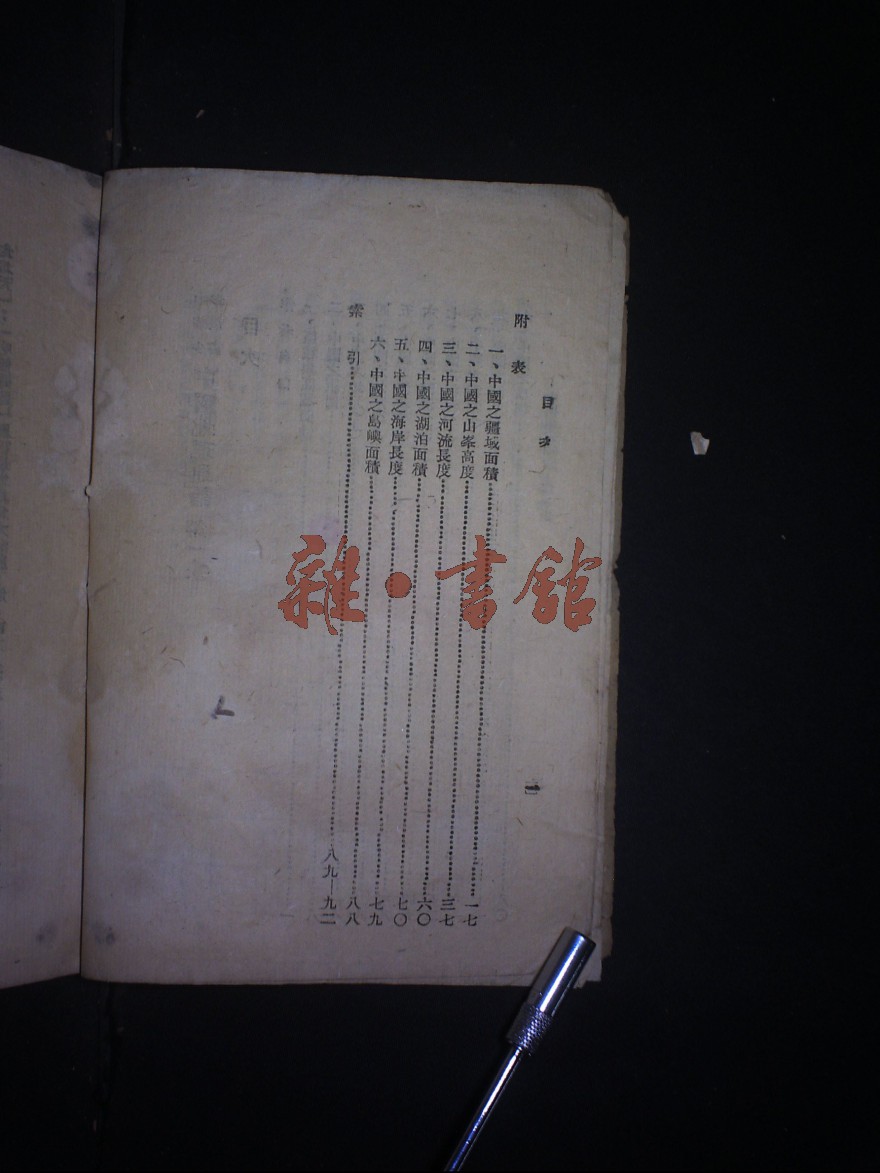 目次 一
附表
一、中國之疆域面積……一七
二、中國之山峯高度……三七
三、中國之河流長度……六〇
四、中國之湖泊面積……七〇
五、中國之海岸長度……七九
六、中國之島嶼面積……八八
索引……八九—九二
雜·書館